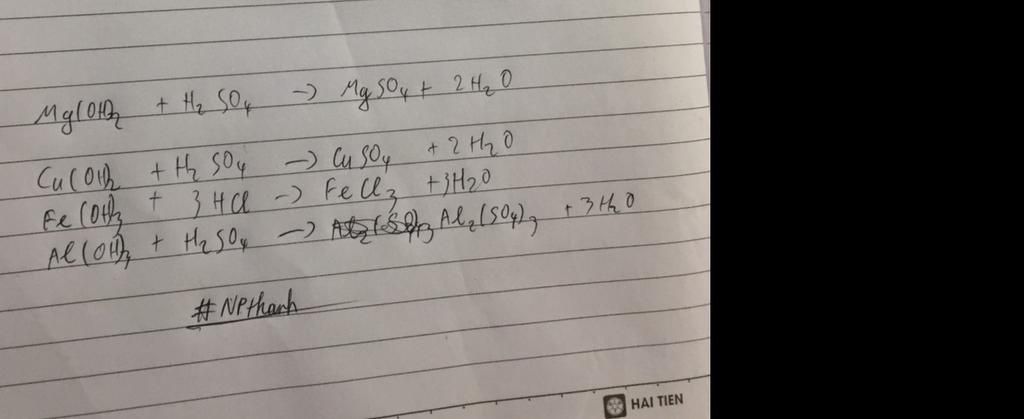 Mg(OH)₂ + H₂SO₄ → MgSO₄ + 2H₂O
Cu(OH)₂ + H₂SO₄ → CuSO₄ + 2H₂O
Fe(OH)₃ + 3HCl → FeCl₃ + 3H₂O
Al(OH)₃ + H₂SO₄ → Al₂(SO₄)₃ + 3H₂O
#NPthanh
HAI TIEN